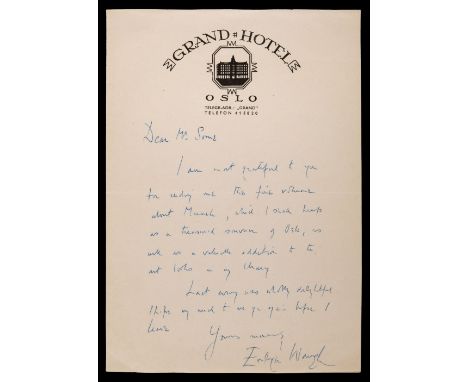 GRAND HOTEL
OSLO
TELEGR.ADR.: „GRAND"
TELEFON
Dear Mr
I am most grateful to you
for sending me this fine volume
about Munch, which I shall keep
as a treasured souvenir of Oslo, as
well as a valuable addition to the
art books in my library
Last evening was wholly delightful
I hope my and to see you again before I
leave
Yours
Evelyn Waugh